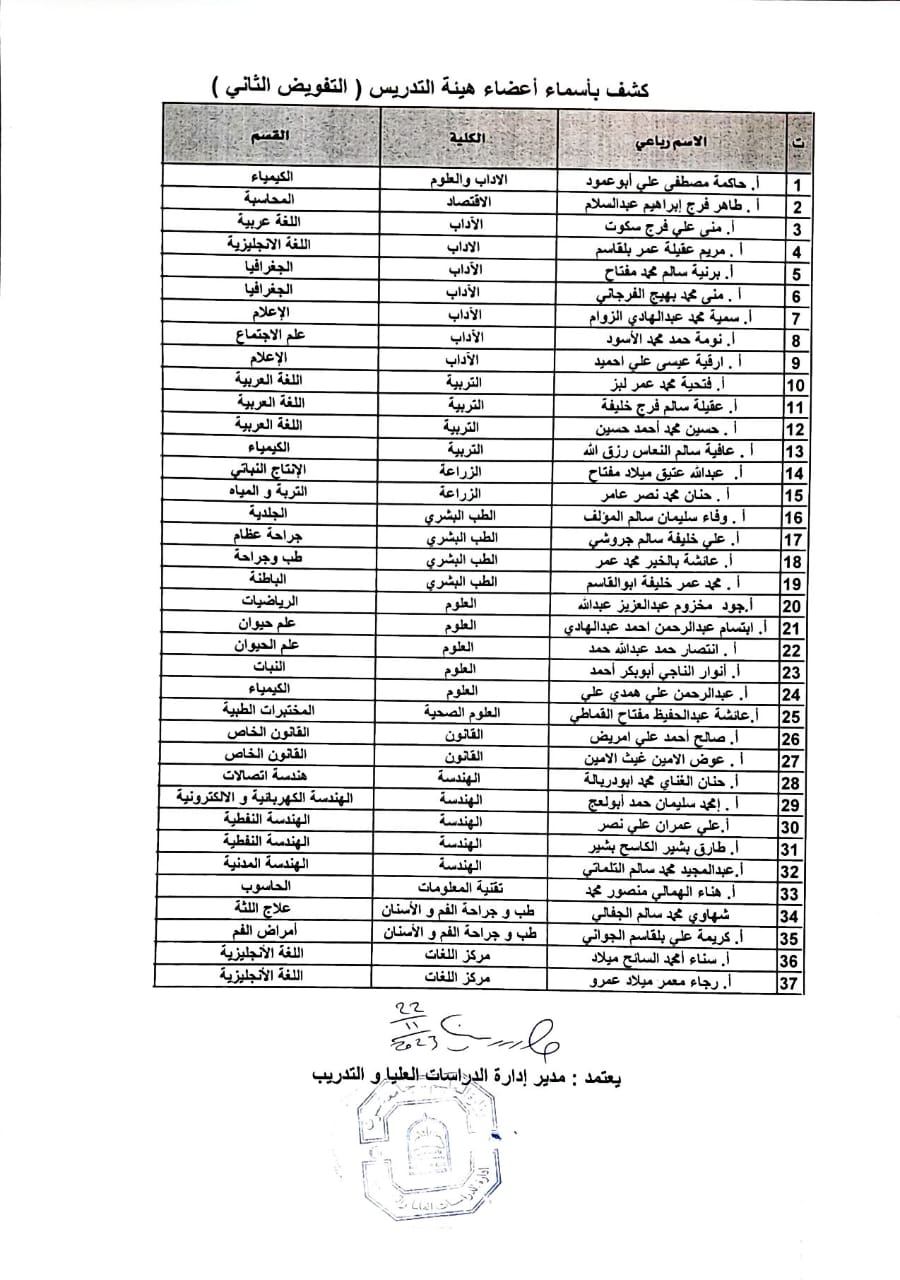 كشف بأسماء أعضاء هيئة التدريس ( التفويض الثاني )
ت الاسم رباعي الكلية القسم
1 أ. حاكمة مصطفى علي أبوعمود الاداب والعلوم الكيمياء
2 أ . طاهر فرج إبراهيم عبدالسلام الاقتصاد المحاسبة
3 أ. منى علي فرج سكوت الآداب اللغة عربية
4 أ . مريم عقيلة عمر بلقاسم الاداب اللغة الانجليزية
5 أ. برنية سالم محمد مفتاح الآداب الجغرافيا
6 أ . منى محمد بهيج الفرجاني الآداب الجغرافيا
7 أ. سمية محمد عبدالهادي الزوام الآداب الإعلام
8 أ. نومة حمد محمد الأسود الآداب علم الاجتماع
9 أ . ارقية عيسى علي احميد الآداب الإعلام
10 أ. فتحية محمد عمر لبز التربية اللغة العربية
11 أ. عقيلة سالم فرج خليفة التربية اللغة العربية
12 أ . حسين محمد أحمد حسين التربية اللغة العربية
13 أ . عافية سالم النعاس رزق الله التربية الكيمياء
14 أ. عبدالله عتيق ميلاد مفتاح الزراعة الإنتاج النباتي
15 أ . حنان محمد نصر عامر الزراعة التربة و المياه
16 أ . وفاء سليمان سالم المؤلف الطب البشري الجلدية
17 أ. علي خليفة سالم جروشي الطب البشري جراحة عظام
18 أ. عائشة بالخير محمد عمر الطب البشري طب وجراحة
19 أ . محمد عمر خليفة ابوالقاسم الطب البشري الباطنة
20 أ.جود مخزوم عبدالعزيز عبدالله العلوم الرياضيات
21 أ. ابتسام عبدالرحمن احمد عبدالهادي العلوم علم حيوان
22 أ . انتصار حمد عبدالله حمد العلوم علم الحيوان
23 أ. أنوار الناجي أبوبكر أحمد العلوم النبات
24 أ. عبدالرحمن علي همدي علي العلوم الكيمياء
25 أ.عائشة عبدالحفيظ مفتاح القماطي العلوم الصحية المختبرات الطبية
26 أ. صالح أحمد علي امريض القانون القانون الخاص
27 أ . عوض الامين غيث الامين القانون القانون الخاص
28 أ. حنان الغناي محمد ابودربالة الهندسة هندسة اتصالات
29 أ . إمحمد سليمان حمد أبولعج الهندسة الهندسة الكهربائية و الالكترونية
30 أ.علي عمران علي نصر الهندسة الهندسة النفطية
31 أ. طارق بشير الكاسح بشير الهندسة الهندسة النفطية
32 أ.عبدالمجيد محمد سالم التلماتي الهندسة الهندسة المدنية
33 أ. هناء الهمالي منصور محمد تقنية المعلومات الحاسوب
34 شهاوي محمد سالم الجفالي طب و جراحة الفم و الأسنان علاج اللثة
35 أ. كريمة علي بلقاسم الجواني طب و جراحة الفم و الأسنان أمراض الفم
36 أ. سناء أمحمد السائح ميلاد مركز اللغات اللغة الأنجليزية
37 أ. رجاء معمر ميلاد عمرو مركز اللغات اللغة الأنجليزية
22
11
2023
يعتمد : مدير إدارة الدراسات العليا و التدريب